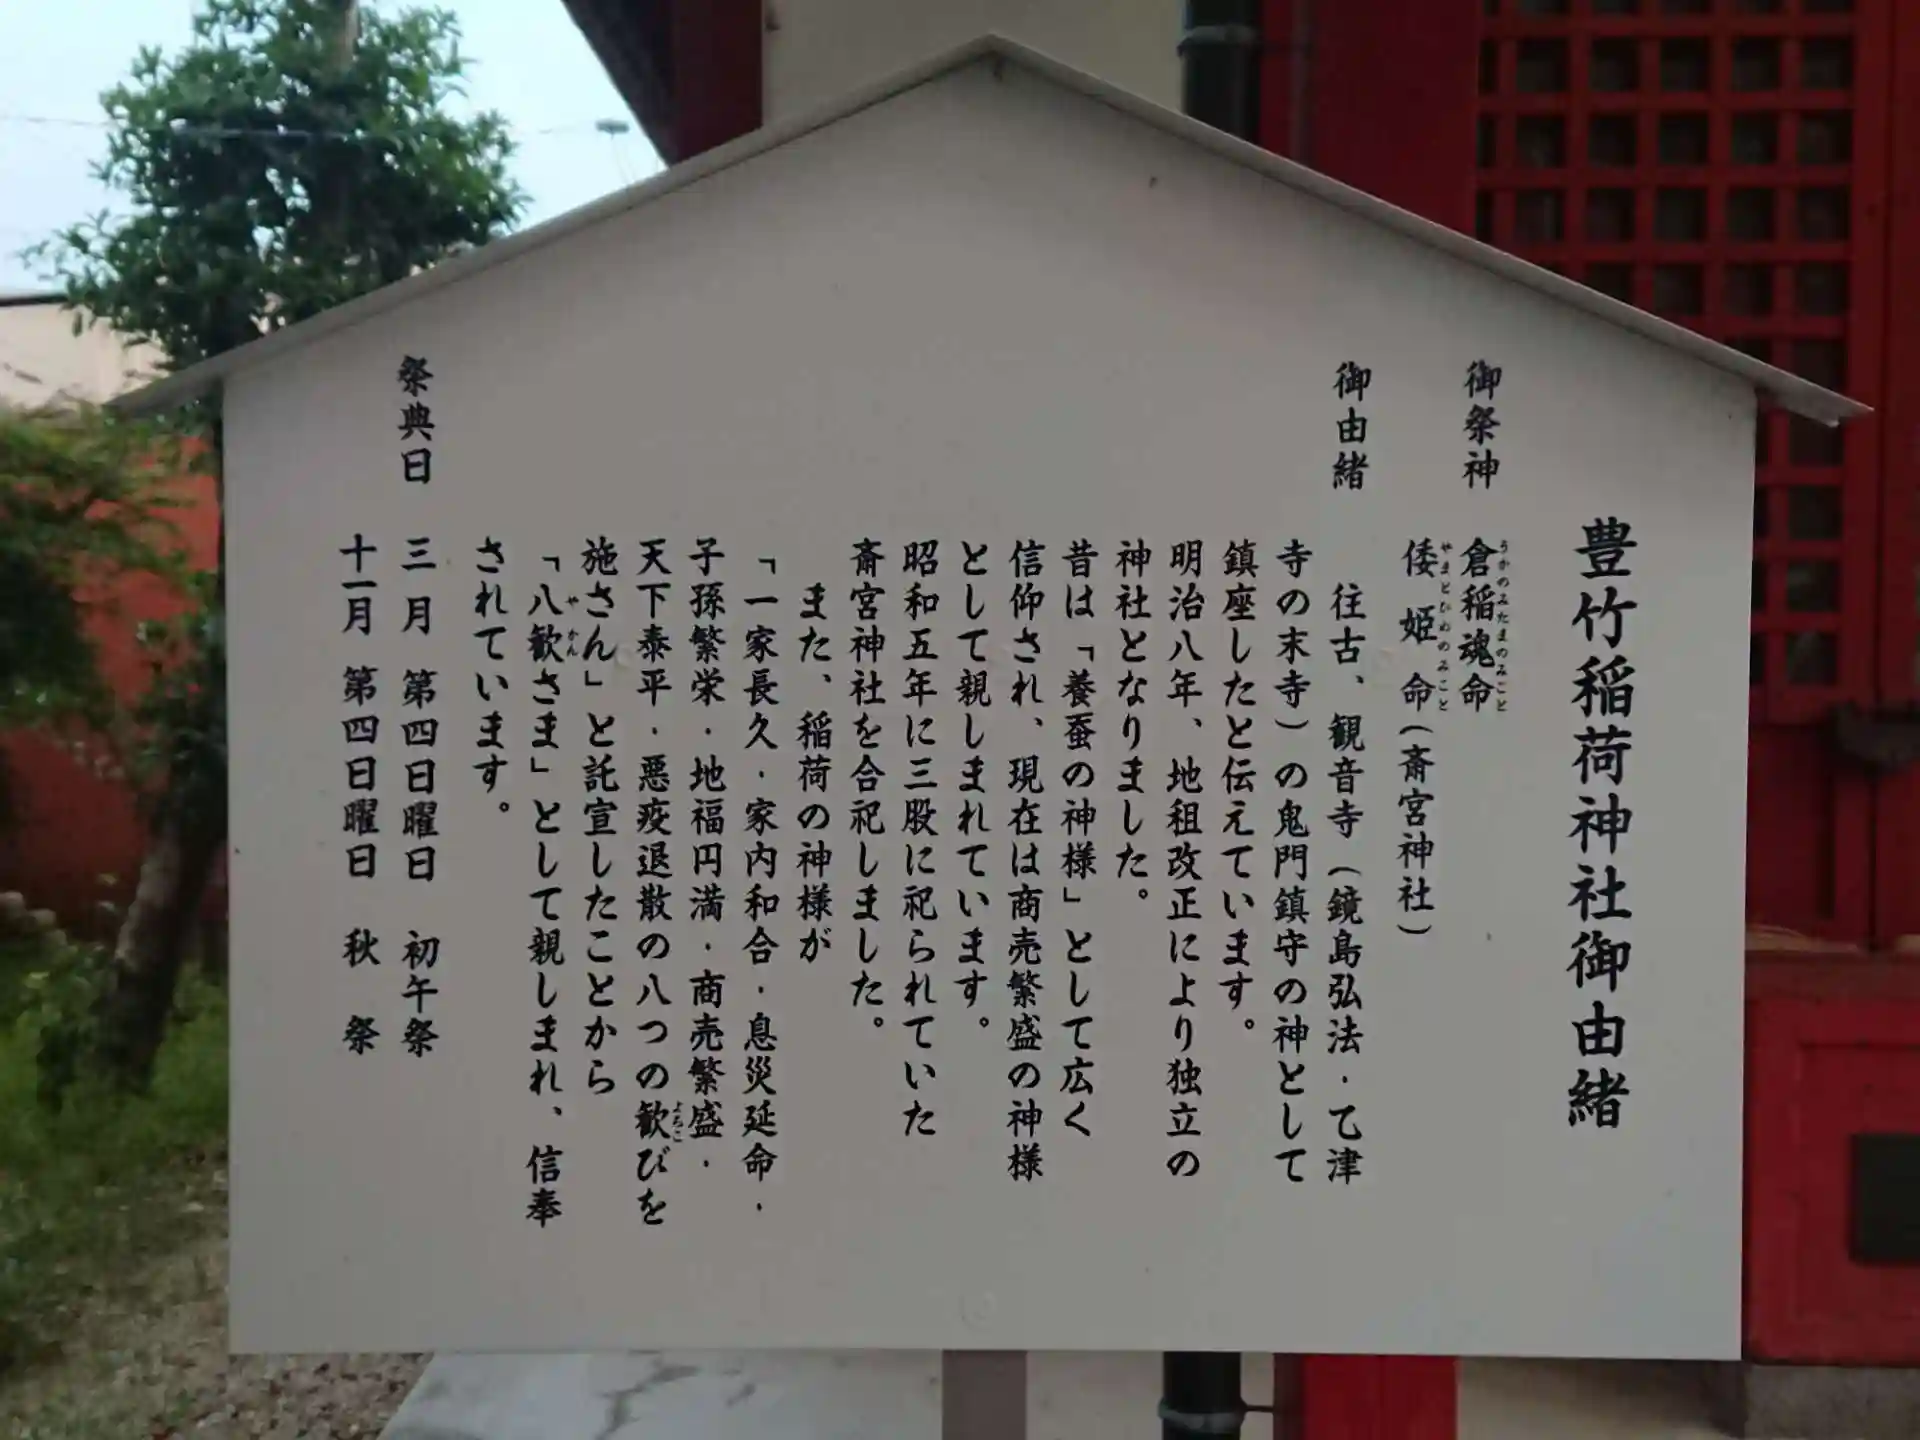 豊竹稲荷神社御由緒
御祭神 倉稲魂命
うかのみたまのみこと
倭姫命(斎宮神社)
やまとひめのみこと
御由緒 往古、観音寺(鏡島弘法・乙津
寺の末寺)の鬼門鎮守の神として
鎮座したと伝えています。
明治八年、地租改正により独立の
神社となりました。
昔は「養蚕の神様」として広く
信仰され、現在は商売繁盛の神様
として親しまれています。
昭和五年に三股に祀られていた
斎宮神社を合祀しました。
また、稲荷の神様が
「一家長久・家内和合・息災延命・
子孫繁栄・地福円満・商売繁盛・
天下泰平・悪疫退散の八つの歓びを
よろこ
施さん」と託宣したことから
「八歓さま」として親しまれ、信奉
やかん
されています。
祭典日 三月 第四日曜日 初午祭
十一月 第四日曜日 秋祭